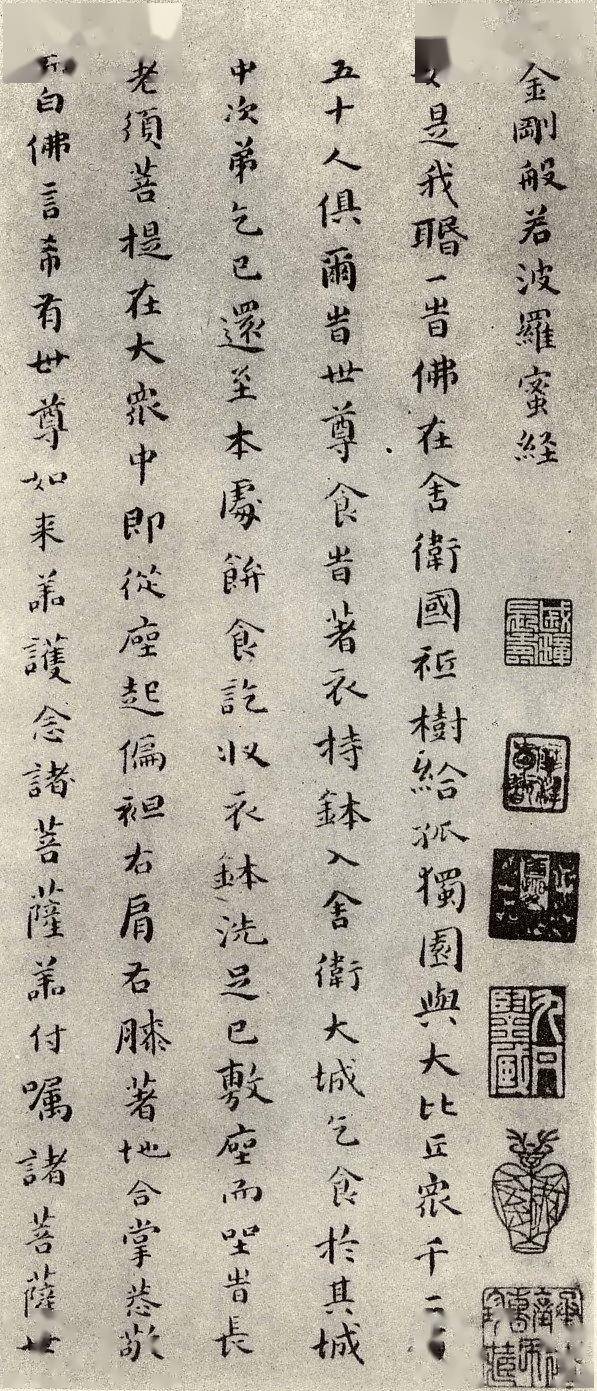 金剛般若波羅蜜経
是我聞一時佛在舍衛國祇樹給孤獨園與大比丘衆千二
五十人俱爾時世尊食時著衣持鉢入舍衛大城乞食於其城
中次第乞已還至本處飯食訖收衣鉢洗足已敷座而坐時長
老須菩提在大衆中即從座起偏袒右肩右膝著地合掌恭敬
白佛言希有世尊如来善護念諸菩薩善付囑諸菩薩世